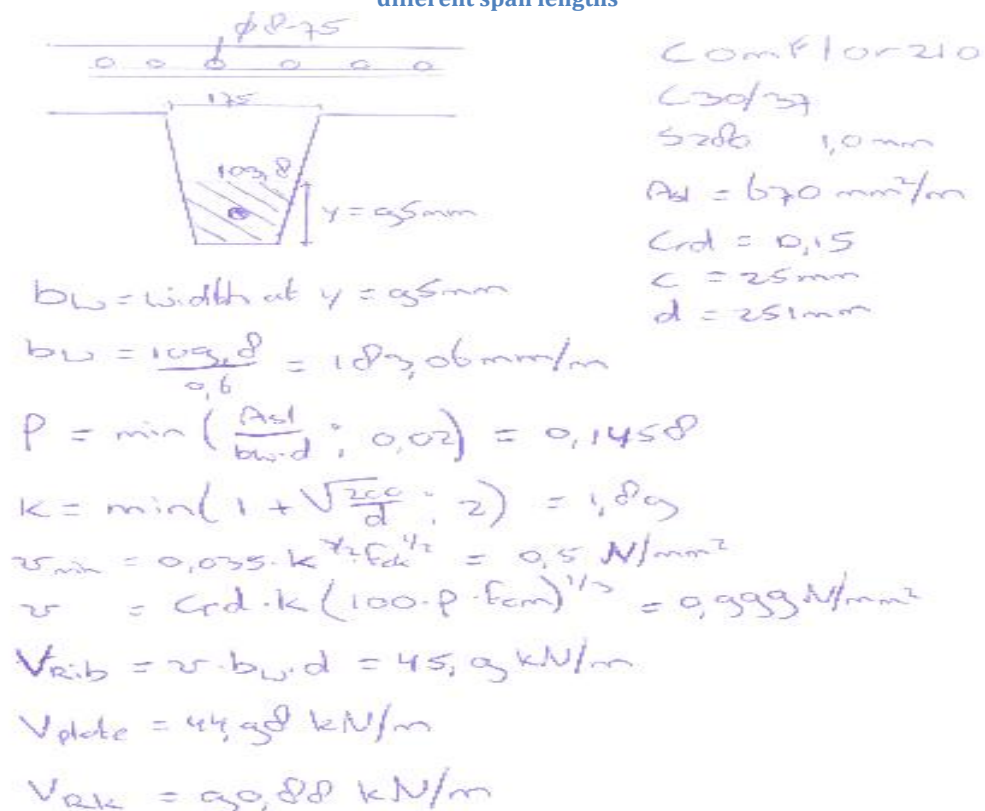 different span lengths
ø8-75
ComFlor 210
175
C30/37
S280 1,0 mm
109,8
y = 95mm
Asl = 670 mm²/m
Crd = 0,15
c = 25mm
d = 251mm
bw = width at y = 95mm
bw = 109,8 / 0,6 = 183,06 mm/m
ρ = min(Asl / bw·d ; 0,02) = 0,1458
k = min(1 + √200/d ; 2) = 1,89
vmin = 0,035·k^3/2·fck^1/2 = 0,5 N/mm²
v = Crd·k(100·ρ·fcm)^1/3 = 0,999 N/mm²
VRib = v·bw·d = 45,9 kN/m
Vplate = 44,98 kN/m
VRk = 90,88 kN/m